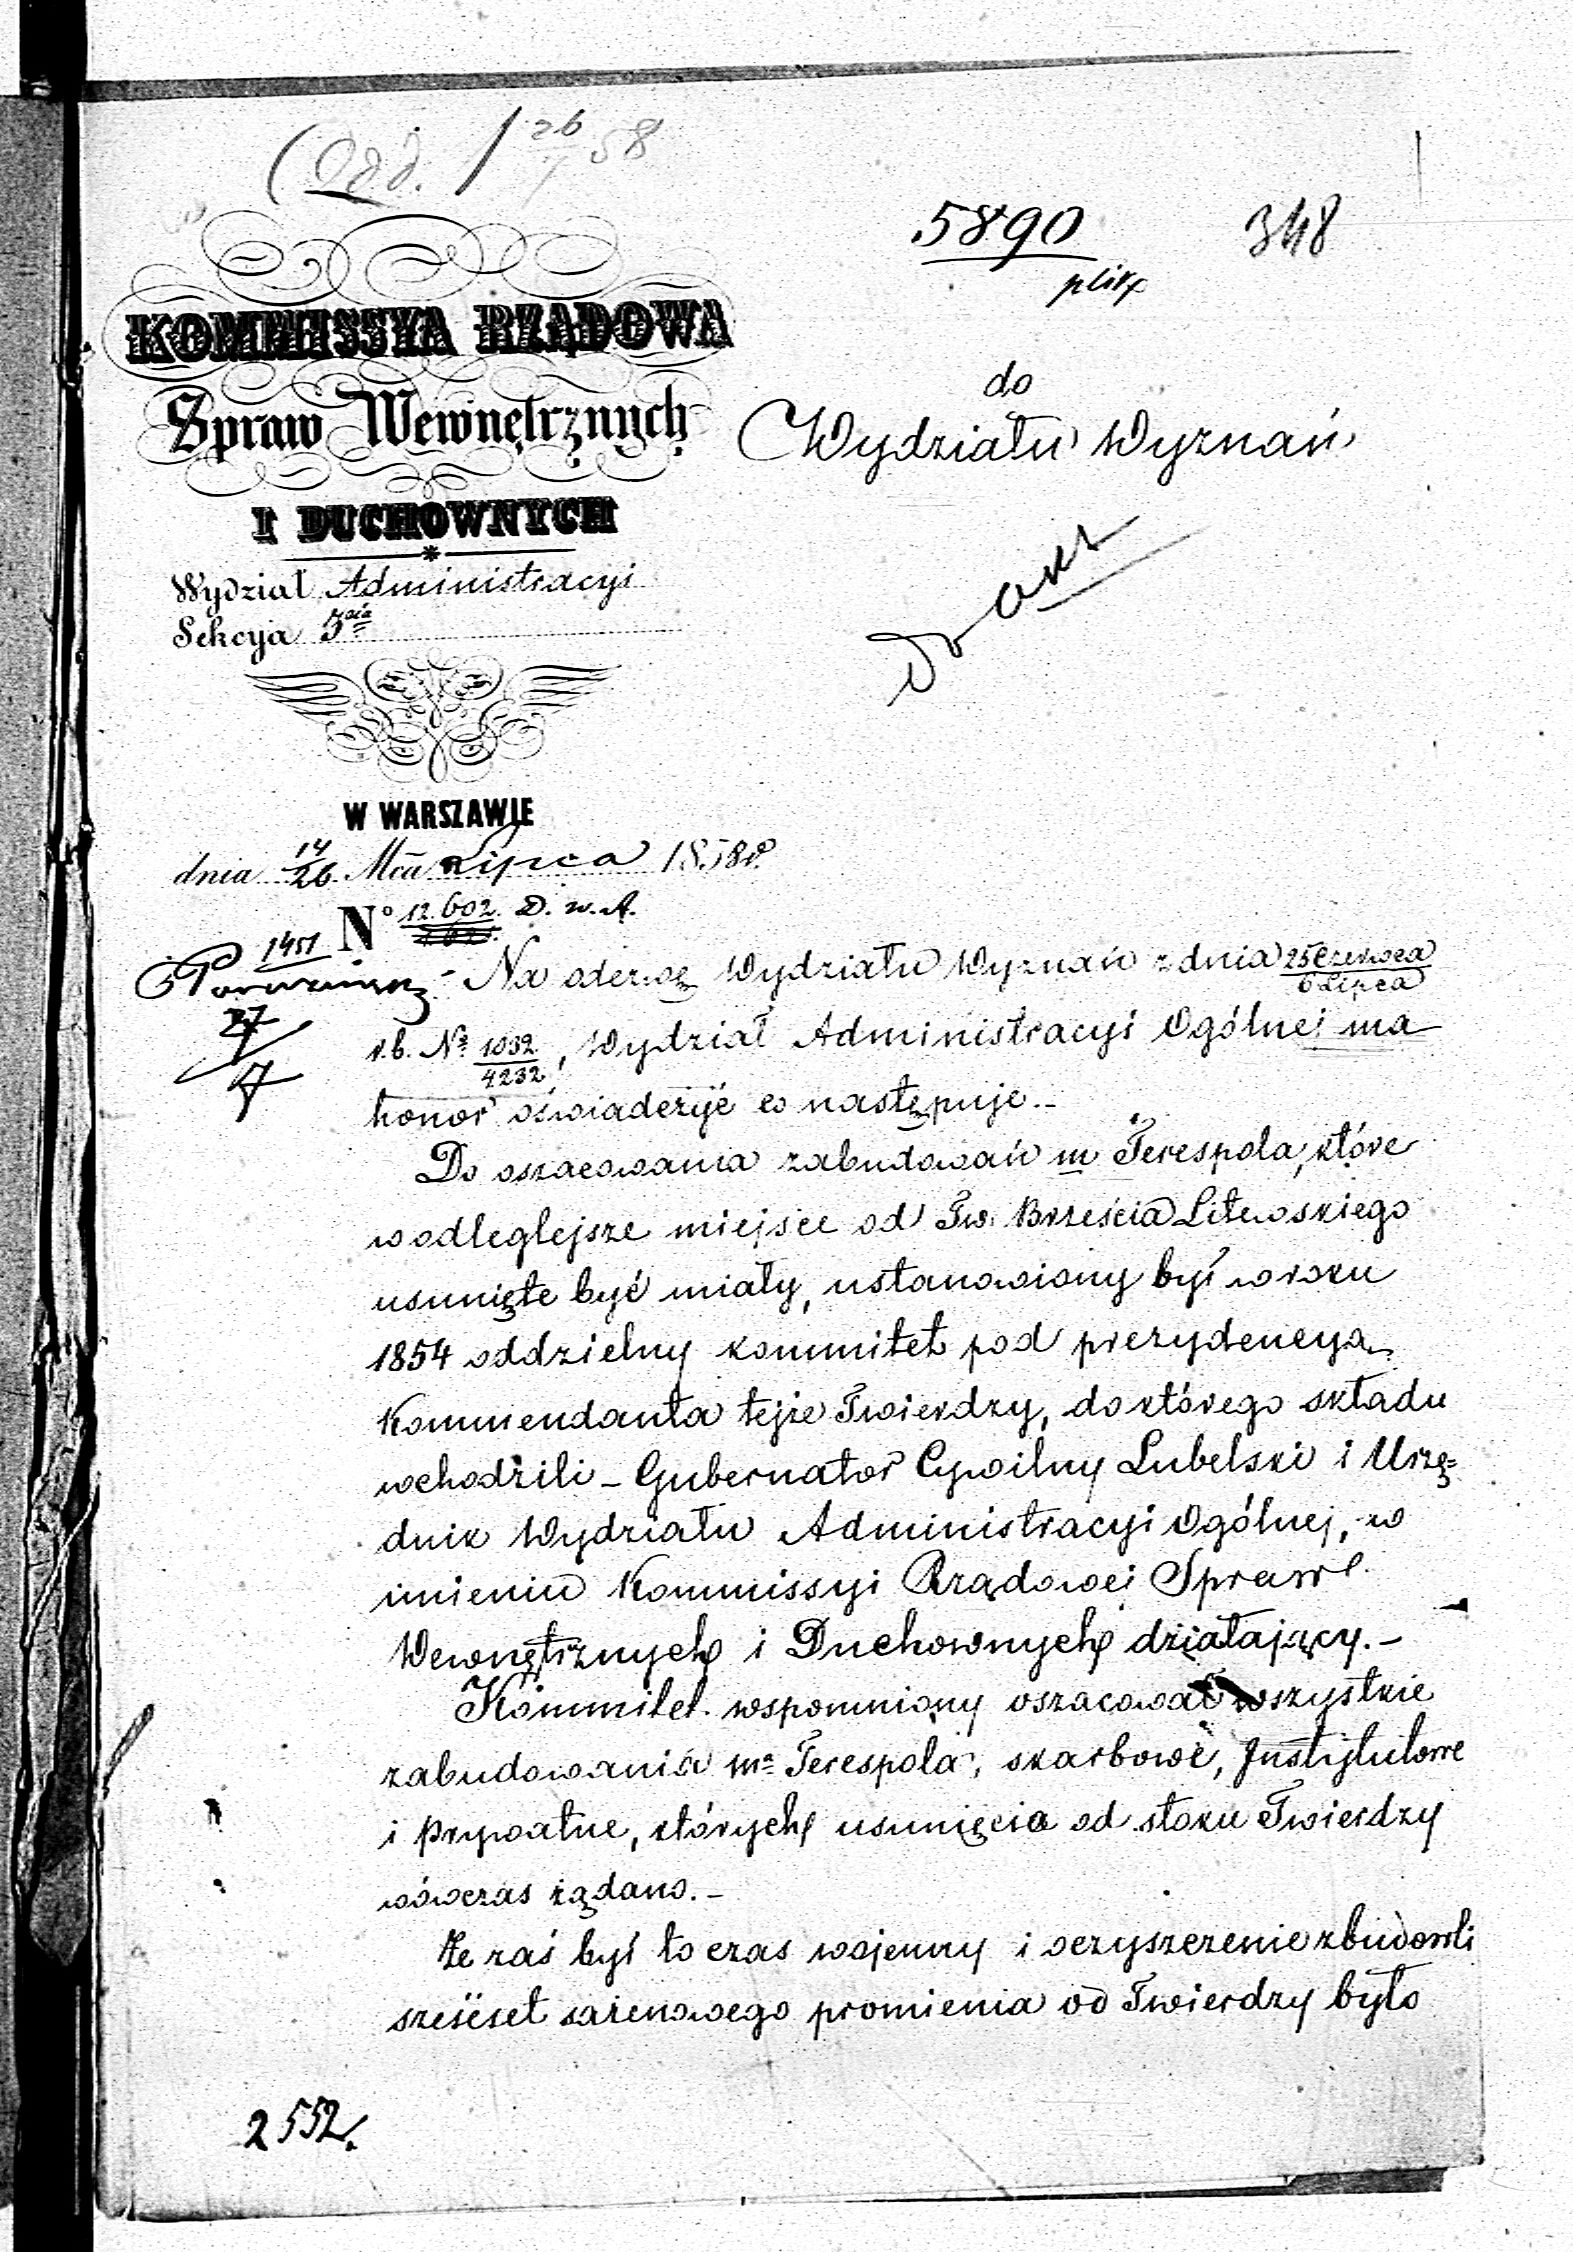 (Odd. 1 26/7 58
5890
348
KOMMISSYA RZĄDOWA
Spraw Wewnętrznych
I DUCHOWNYCH
Wydział Administracyi
Sekcyja 3cia
do
Wydziału Wyznań
Do akt
W WARSZAWIE
dnia 14/26 Mca Lipca 1858 r.
No 12.602 D. w. A.
1451
27
7
Na odezwę Wydziału Wyznań z dnia 25 Czerwca / 6 Lipca
r.b. No 1032/4232, Wydział Administracyi Ogólnej ma
honor oświadczyć co następuje.-
Do oszacowania zabudowań m Terespola, które
w odleglejsze miejsce od Tw. Brześcia Litewskiego
usunięte być miały, ustanowiony był w roku
1854 oddzielny kommitet pod prezydencyą
Kommendanta tejże Twierdzy, do którego składu
wchodzili - Gubernator Cywilny Lubelski i Urzę=
dnik Wydziału Administracyi Ogólnej, w
imieniu Kommissyi Rządowej Spraw
Wewnętrznych i Duchownych działający.-
Kommitet wspomniony oszacował wszystkie
zabudowania ma Terespola, skarbowe, Instytutowe
i prywatne, których usunięcia od stoku Twierdzy
wówczas żądano.-
Że zaś był to czas wojenny i oczyszczenie z budowli
sześćset sażenowego promienia od Twierdzy było
2552.